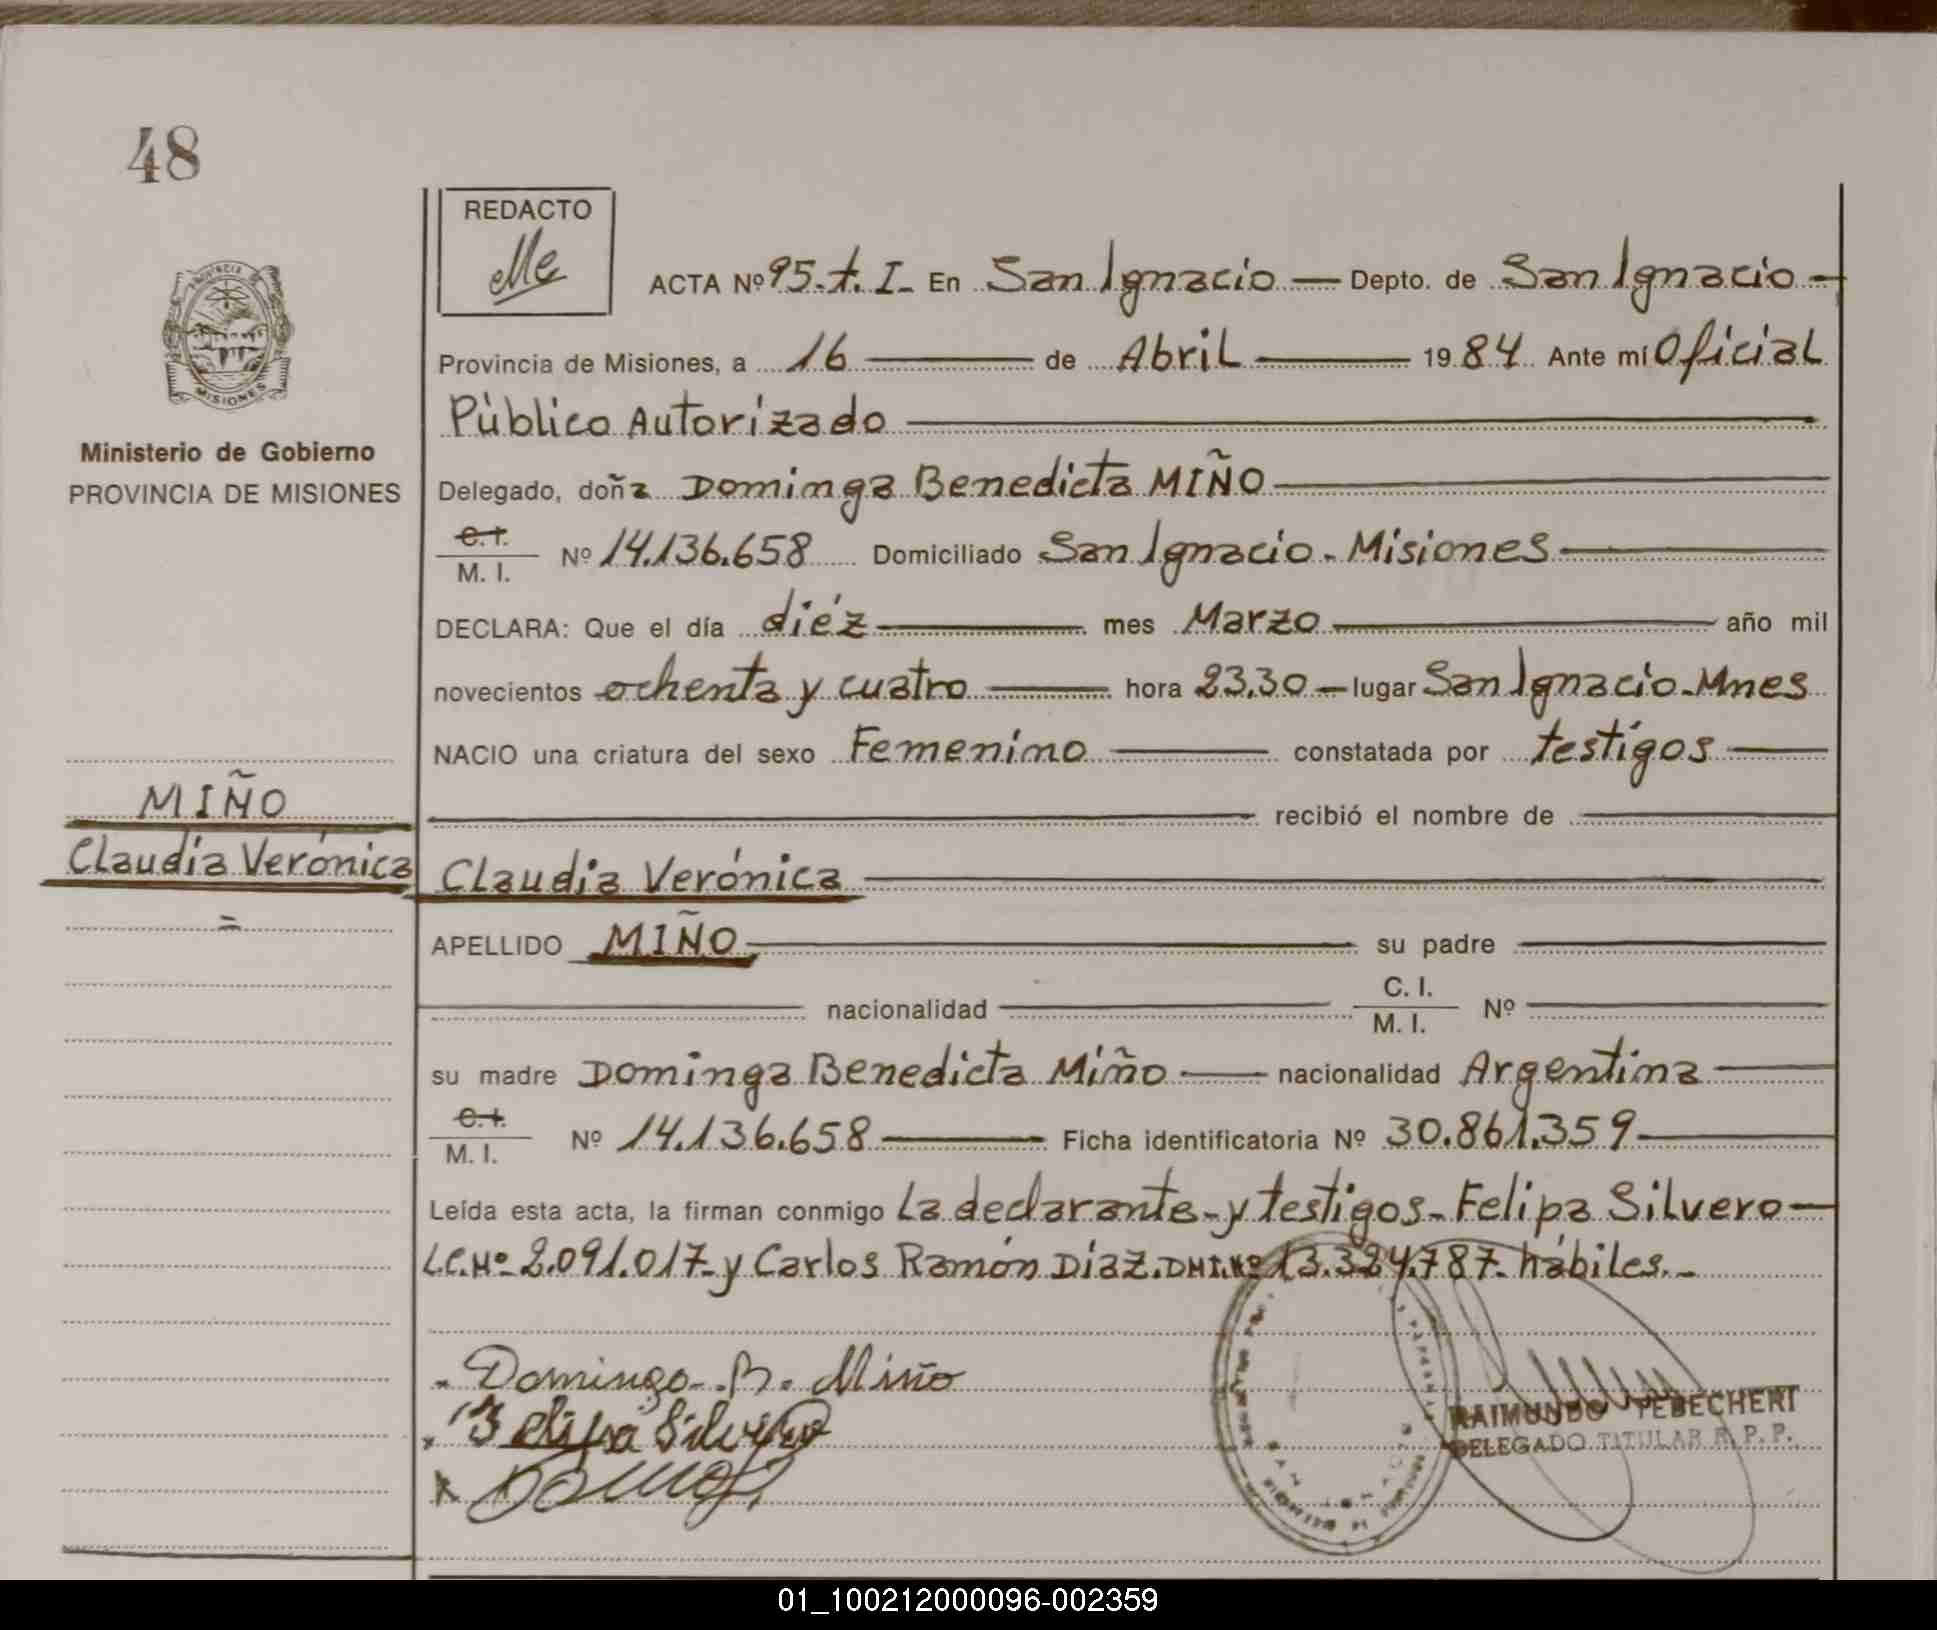 48
REDACTO
Me
PROVINCIA
MISIONES
Ministerio de Gobierno
PROVINCIA DE MISIONES
ACTA Nº 95-t. I- En San Ignacio — Depto. de San Ignacio —
Provincia de Misiones, a 16 de Abril 1984 Ante mí Oficial
Público Autorizado
Delegado, doña Dominga Benedicta MIÑO
C. I.
M. I. Nº 14.136.658 Domiciliado San Ignacio - Misiones
DECLARA: Que el día diéz mes Marzo año mil
novecientos ochenta y cuatro hora 23.30 — lugar San Ignacio - Mnes
NACIO una criatura del sexo Femenino constatada por testigos
recibió el nombre de
MIÑO
Claudia Verónica
=
Claudia Verónica
APELLIDO MIÑO su padre
nacionalidad C. I. M. I. Nº
su madre Dominga Benedicta Miño nacionalidad Argentina
C. I.
M. I. Nº 14.136.658 Ficha identificatoria Nº 30.861.359
Leída esta acta, la firman conmigo La declarante - y testigos - Felipa Silvero —
L.C. Nº 2.091.017 - y Carlos Ramón Díaz. DNI. Nº 13.324.787 - hábiles. -
Domingo B. Miño
Felipa Silvero
RAIMUNDO TEBECHERI
DELEGADO TITULAR R. P. P.
01_100212000096-002359